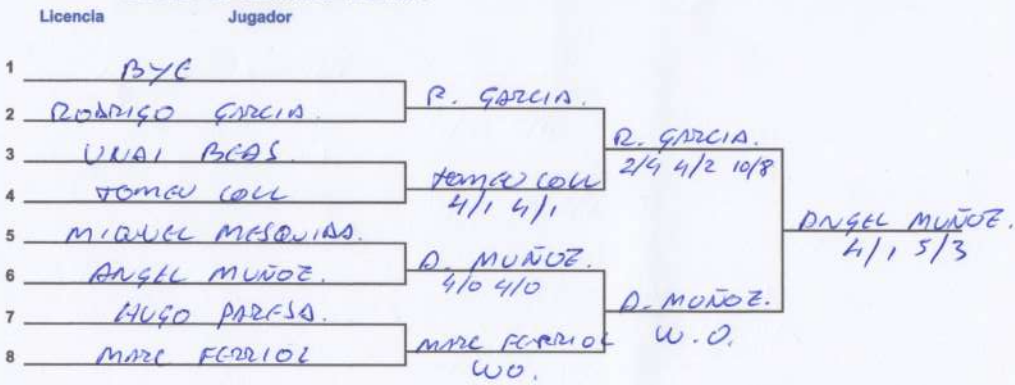 Licencia Jugador
1 BYE
2 RODRIGO GARCIA.
3 UNAI BEAS.
4 TOMEU COLL
5 MIQUEL MESQUIDA.
6 ANGEL MUÑOZ.
7 HUGO PARESA.
8 MARC FERRIOL
R. GARCIA.
TOMEU COLL
4/1 4/1
A. MUÑOZ.
4/0 4/0
MARC FERRIOL
WO.
R. GARCIA.
2/4 4/2 10/8
A. MUÑOZ.
W.O.
ANGEL MUÑOZ.
4/1 5/3